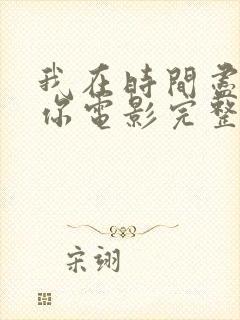 我在時間盡
你電影完整
宋翊